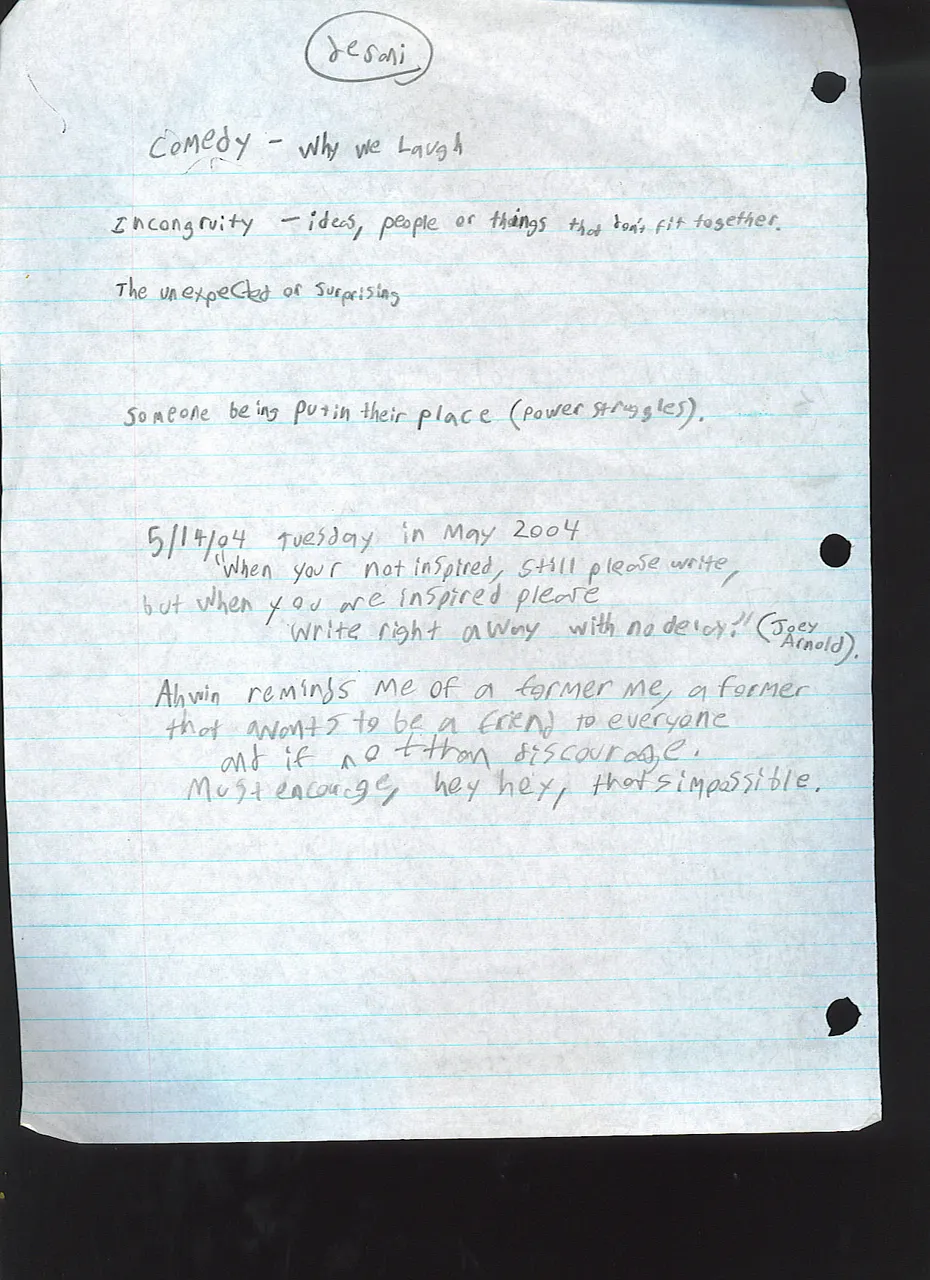 Comedy - Why we Laugh
Incongruity - ideas, people or things that don't fit together.
The unexpected or surprising
Someone being put in their place (power struggles).
5/14/04 Tuesday in May 2004
"When your not inspired, still please write,
but when you are inspired please
write right away with no delay." (Joey
Arnold).
reminds me of a former me, a former
that wants to be a friend to everyone
and if not than discourage.
Must encourage, hey hey, that's impossible.